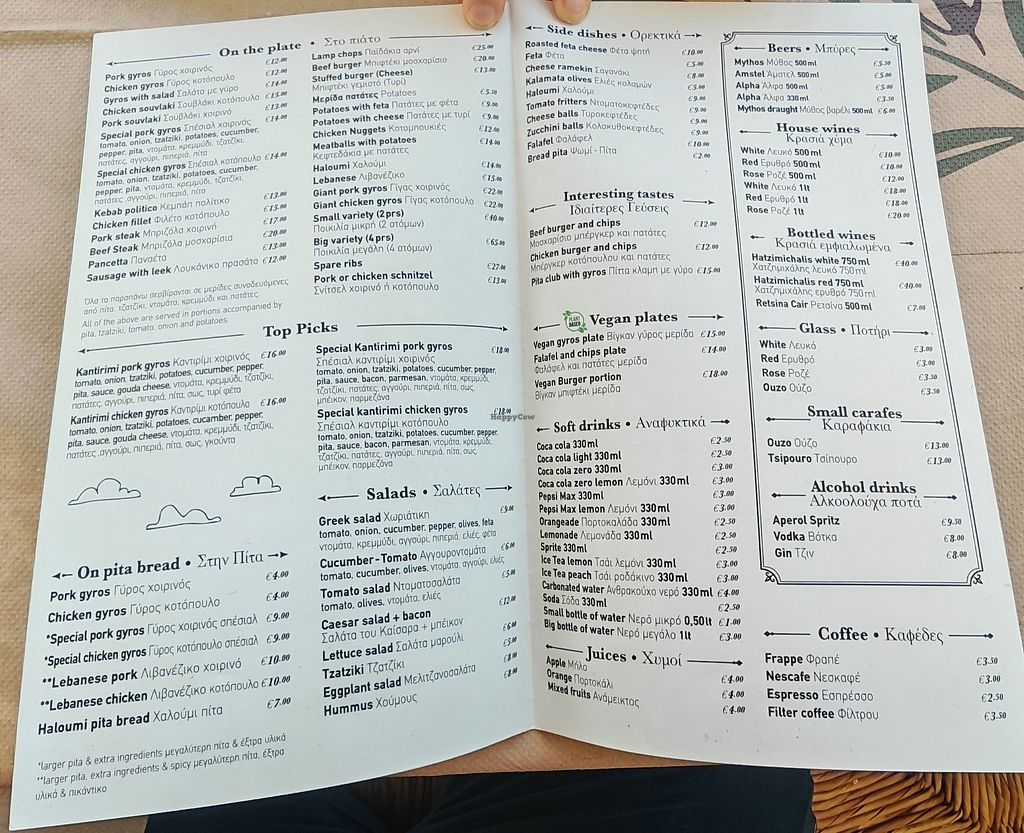 On the plate • Στο πιάτο
Pork gyros Γύρος χοιρινός €12.00
Chicken gyros Γύρος κοτόπουλο €12.00
Gyros with salad Σαλάτα με γύρο €14.00
Chicken souvlaki Σουβλάκι κοτόπουλο €15.00
Pork souvlaki Σουβλάκι χοιρινό €13.00
Special pork gyros Σπέσιαλ χοιρινός €14.00
tomato, onion, tzatziki, potatoes, cucumber,
pepper, pita, ντομάτα, κρεμμύδι, τζατζίκι,
πατάτες, αγγούρι, πιπεριά, πίτα
Special chicken gyros Σπέσιαλ κοτόπουλο €14.00
tomato, onion, tzatziki, potatoes, cucumber,
pepper, pita, ντομάτα, κρεμμύδι, τζατζίκι,
πατάτες ,αγγούρι, πιπεριά, πίτα
Kebab politico Κεμπάπ πολίτικο €13.00
Chicken fillet Φιλέτο κοτόπουλο €15.00
Pork steak Μπριζόλα χοιρινή €17.00
Beef Steak Μπριζόλα μοσχαρίσια €20.00
Pancetta Πανσέτα €13.00
Sausage with leek Λουκάνικο πρασάτο €12.00
Όλα τα παραπάνω σερβίρονται σε μερίδες συνοδευόμενες
από πίτα, τζατζίκι, ντομάτα, κρεμμύδι και πατάτες.
All of the above are served in portions accompanied by
pita, tzatziki, tomato, onion and potatoes.
Lamp chops Παϊδάκια αρνί €25.00
Beef burger Μπιφτέκι μοσχαρίσιο €20.00
Stuffed burger (Cheese) €13.00
Μπιφτέκι γεμιστό (Τυρί)
Μερίδα πατάτες Potatoes €5.50
Potatoes with feta Πατάτες με φέτα €9.00
Potatoes with cheese Πατάτες με τυρί €9.00
Chicken Nuggets Κοτομπουκιές €12.00
Meatballs with potatoes €14.00
Κεφτεδάκια με πατάτες
Haloumi Χαλούμι €14.00
Lebanese Λιβανέζικο €15.00
Giant pork gyros Γίγας χοιρινός €22.00
Giant chicken gyros Γίγας κοτόπουλο €22.00
Small variety (2prs) €40.00
Ποικιλία μικρή (2 ατόμων)
Big variety (4 prs) €65.00
Ποικιλία μεγάλη (4 ατόμων)
Spare ribs €27.00
Pork or chicken schnitzel €13.00
Σνίτσελ χοιρινό ή κοτόπουλο
Top Picks
Kantirimi pork gyros Καντιρίμι χοιρινός €16.00
tomato, onion, tzatziki, potatoes, cucumber, pepper,
pita, sauce, gouda cheese, ντομάτα, κρεμμύδι, τζατζίκι,
πατάτες, αγγούρι, πιπεριά, πίτα, σως, τυρί φέτα
Kantirimi chicken gyros Καντιρίμι κοτόπουλο €16.00
tomato, onion, tzatziki, potatoes, cucumber, pepper,
pita, sauce, gouda cheese, ντομάτα, κρεμμύδι, τζατζίκι,
πατάτες ,αγγούρι, πιπεριά, πίτα, σως, γκούντα
Special Kantirimi pork gyros €18.00
Σπέσιαλ καντιρίμι χοιρινός
tomato, onion, tzatziki, potatoes, cucumber, pepper,
pita, sauce, bacon, parmesan, ντομάτα, κρεμμύδι,
τζατζίκι, πατάτες, αγγούρι, πιπεριά, πίτα, σως,
μπέικον, παρμεζάνα
Special kantirimi chicken gyros €18.00
Σπέσιαλ καντιρίμι κοτόπουλο
tomato, onion, tzatziki, potatoes, cucumber, pepper,
pita, sauce, bacon, parmesan, ντομάτα, κρεμμύδι,
τζατζίκι, πατάτες, αγγούρι, πιπεριά, πίτα, σως,
μπέικον, παρμεζάνα
On pita bread • Στην Πίτα
Pork gyros Γύρος χοιρινός €4.00
Chicken gyros Γύρος κοτόπουλο €4.00
*Special pork gyros Γύρος χοιρινός σπέσιαλ €9.00
*Special chicken gyros Γύρος κοτόπουλο σπέσιαλ €9.00
**Lebanese pork Λιβανέζικο χοιρινό €10.00
**Lebanese chicken Λιβανέζικο κοτόπουλο €10.00
Haloumi pita bread Χαλούμι πίτα €7.00
*larger pita & extra ingredients μεγαλύτερη πίτα & έξτρα υλικά
**larger pita, extra ingredients & spicy μεγαλύτερη πίτα, έξτρα
υλικά & πικάντικο
Salads • Σαλάτες
Greek salad Χωριάτικη €9.00
tomato, onion, cucumber, pepper, olives, feta
ντομάτα, κρεμμύδι, αγγούρι, πιπεριά, ελιές, φέτα
Cucumber-Tomato Αγγουροντομάτα €6.00
tomato, cucumber, olives, ντομάτα, αγγούρι, ελιές
Tomato salad Ντοματοσαλάτα €5.00
tomato, olives, ντομάτα, ελιές
Caesar salad + bacon €12.00
Σαλάτα του Καίσαρα + μπέικον
Lettuce salad Σαλάτα μαρούλι €6.00
Tzatziki Τζατζίκι €5.00
Eggplant salad Μελιτζανοσαλάτα €8.00
Hummus Χούμους €8.00
Side dishes • Ορεκτικά
Roasted feta cheese Φέτα ψητή €10.00
Feta Φέτα €5.00
Cheese ramekin Σαγανάκι €8.00
Kalamata olives Ελιές καλαμών €5.00
Haloumi Χαλούμι €9.00
Tomato fritters Ντοματοκεφτέδες €9.00
Cheese balls Τυροκεφτέδες €9.00
Zucchini balls Κολοκυθοκεφτέδες €9.00
Falafel Φαλάφελ €10.00
Bread pita Ψωμί-Πίτα €2.00
Interesting tastes
Ιδιαίτερες Γεύσεις
Beef burger and chips €12.00
Μοσχαρίσιο μπέργκερ και πατάτες
Chicken burger and chips €12.00
Μπέργκερ κοτόπουλου και πατάτες
Pita club with gyros Πίττα κλαμπ με γύρο €15.00
PLANT BASED
Vegan plates
Vegan gyros plate Βίγκαν γύρος μερίδα €15.00
Falafel and chips plate €14.00
Φαλάφελ και πατάτες μερίδα
Vegan Burger portion €18.00
Βίγκαν μπιφτέκι μερίδα
HappyCow
Soft drinks • Αναψυκτικά
Coca cola 330ml €2.50
Coca cola light 330ml €2.50
Coca cola zero 330ml €3.00
Coca cola zero lemon Λεμόνι 330ml €3.00
Pepsi Max 330ml €3.00
Pepsi Max lemon Λεμόνι 330ml €3.00
Orangeade Πορτοκαλάδα 330ml €2.50
Lemonade Λεμονάδα 330ml €2.50
Sprite 330ml €2.50
Ice Tea lemon Τσάι λεμόνι 330ml €3.00
Ice Tea peach Τσάι ροδάκινο 330ml €3.00
Carbonated water Ανθρακούχο νερό 330ml €4.00
Soda Σόδα 330ml €2.50
Small bottle of water Νερό μικρό 0,50lt €1.00
Big bottle of water Νερό μεγάλο 1lt €3.00
Juices • Χυμοί
Apple Μήλο €4.00
Orange Πορτοκάλι €4.00
Mixed fruits Ανάμεικτος €4.00
Beers • Μπύρες
Mythos Μύθος 500ml €5.50
Amstel Άμστελ 500ml €5.00
Alpha Άλφα 500ml €5.00
Alpha Άλφα 330ml €3.50
Mythos draught Μύθος βαρέλι 500ml €6.00
House wines
Κρασιά χύμα
White Λευκό 500ml €10.00
Red Ερυθρό 500ml €10.00
Rose Ροζέ 500ml €12.00
White Λευκό 1lt €18.00
Red Ερυθρό 1lt €18.00
Rose Ροζέ 1lt €20.00
Bottled wines
Κρασιά εμφιαλωμένα
Hatzimichalis white 750ml €40.00
Χατζημιχάλης λευκό 750ml
Hatzimichalis red 750ml €40.00
Χατζημιχάλης ερυθρό 750ml
Retsina Cair Ρετσίνα 500ml €7.00
Glass • Ποτήρι
White Λευκό €3.00
Red Ερυθρό €3.00
Rose Ροζέ €3.50
Ouzo Ούζο €3.50
Small carafes
Καραφάκια
Ouzo Ούζο €13.00
Tsipouro Τσίπουρο €13.00
Alcohol drinks
Αλκοολούχα ποτά
Aperol Spritz €9.50
Vodka Βότκα €8.00
Gin Τζιν €8.00
Coffee • Καφέδες
Frappe Φραπέ €3.50
Nescafe Νεσκαφέ €3.00
Espresso Εσπρέσσο €2.50
Filter coffee Φίλτρου €3.50